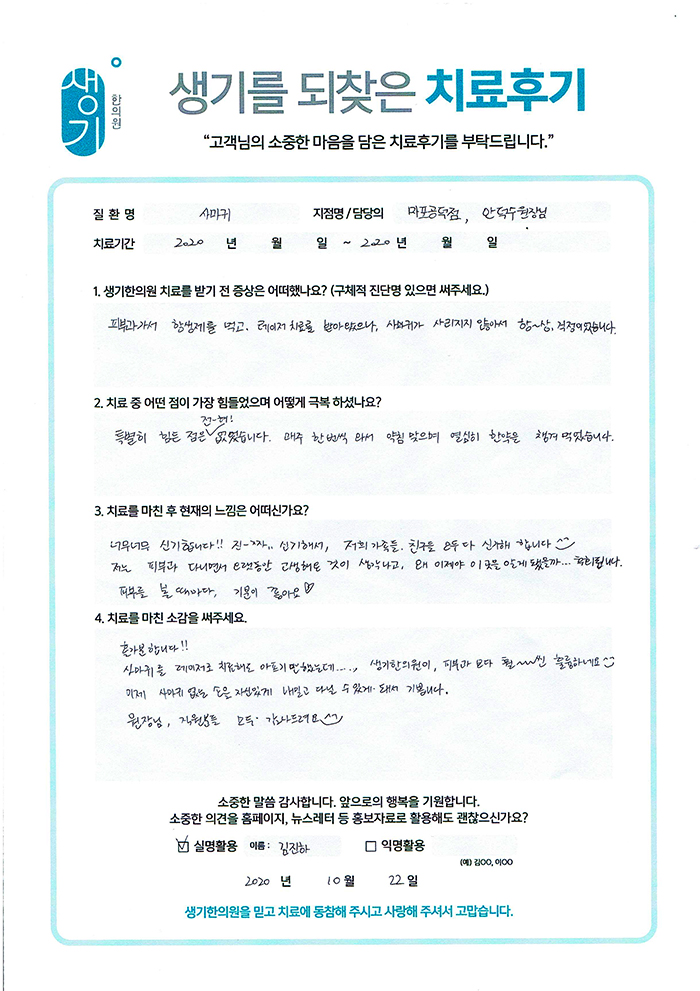 생기
한의원
생기를 되찾은 치료후기
“고객님의 소중한 마음을 담은 치료후기를 부탁드립니다.”
질 환 명 사마귀 지점명 / 담당의 마포공덕점, 안덕수원장님
치료기간 2020 년 월 일 ~ 2020 년 월 일
1. 생기한의원 치료를 받기 전 증상은 어떠했나요? (구체적 진단명 있으면 써주세요.)
피부과가서 항생제를 먹고, 레이저 치료를 받아왔으나, 사마귀가 사라지지 않아서 항~상, 걱정이었습니다.
2. 치료 중 어떤 점이 가장 힘들었으며 어떻게 극복 하셨나요?
전-혀!
특별히 힘든 점은 없었습니다. 매주 한번씩 와서 약침 맞으며 열심히 한약을 챙겨 먹었습니다.
3. 치료를 마친 후 현재의 느낌은 어떠신가요?
너무너무 신기합니다!! 진-짜.. 신기해서, 저희 가족들, 친구들 모두 다 신기해 합니다
저는 피부과 다니면서 오랫동안 고생해온 것이 생각나고, 왜 이제야 이곳을 알게 됐을까... 후회됩니다.
피부를 볼 때마다, 기분이 좋아요♡
4. 치료를 마친 소감을 써주세요.
홀가분합니다!!
사마귀를 레이저로 치료해도 아프기만했는데...., 생기한의원이, 피부과 보다 훨~~씬 훌륭하네요
이제 사마귀 없는 손을 자신있게 내밀고 다닐 수 있게 돼서 기쁩니다.
원장님, 직원분들 모두 감사드려요
소중한 말씀 감사합니다. 앞으로의 행복을 기원합니다.
소중한 의견을 홈페이지, 뉴스레터 등 홍보자료로 활용해도 괜찮으신가요?
실명활용 이름 : 김진하 익명활용
(예) 김OO, 이OO
2020 년 10 월 22 일
생기한의원을 믿고 치료에 동참해 주시고 사랑해 주셔서 고맙습니다.